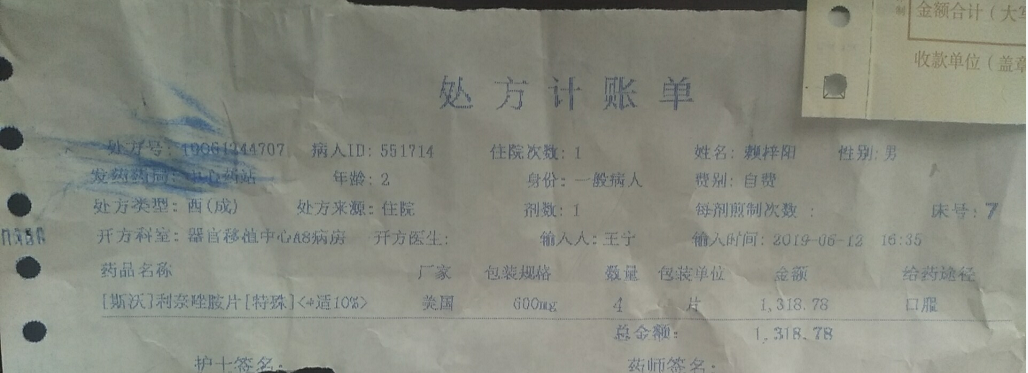 金额合计(大写
收款单位(盖章
处方计账单
处方号: 19061244707 病人ID: 551714 住院次数: 1 姓名: 赖梓阳 性别: 男
发药药局: 中心药站 年龄: 2 身份: 一般病人 费别: 自费
处方类型: 西(成) 处方来源: 住院 剂数: 1 每剂煎制次数 : 床号: 7
开方科室: 器官移植中心A8病房 开方医生: 输入人: 王宁 输入时间: 2019-06-12 16:35
药品名称 厂家 包装规格 数量 包装单位 金额 给药途径
[斯沃]利奈唑胺片[特殊]<+适10%> 美国 600mg 4 片 1,318.78 口服
总金额: 1,318.78
护士签名: 药师签名: